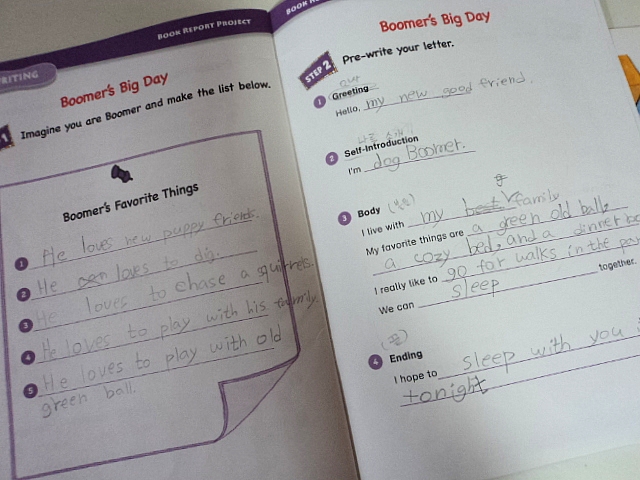 RITING
BOOK REPORT PROJECT
Boomer's Big Day
1 Imagine you are Boomer and make the list below.
Boomer's Favorite Things
1 He loves new puppy friends.
2 He loves to dig.
3 He loves to chase a squirrels.
4 He loves to play with his family.
5 He loves to play with old
green ball.
BOOK R
Boomer's Big Day
STEP 2 Pre-write your letter.
1 Greeting
Hello, my new good friend.
나를 소개
2 Self-Introduction
I'm dog Boomer.
3 Body
I live with my best family
My favorite things are a green old ball,
a cozy bed, and a dinner
I really like to go for walks in the
We can sleep together.
4 Ending
I hope to sleep with you
tonight